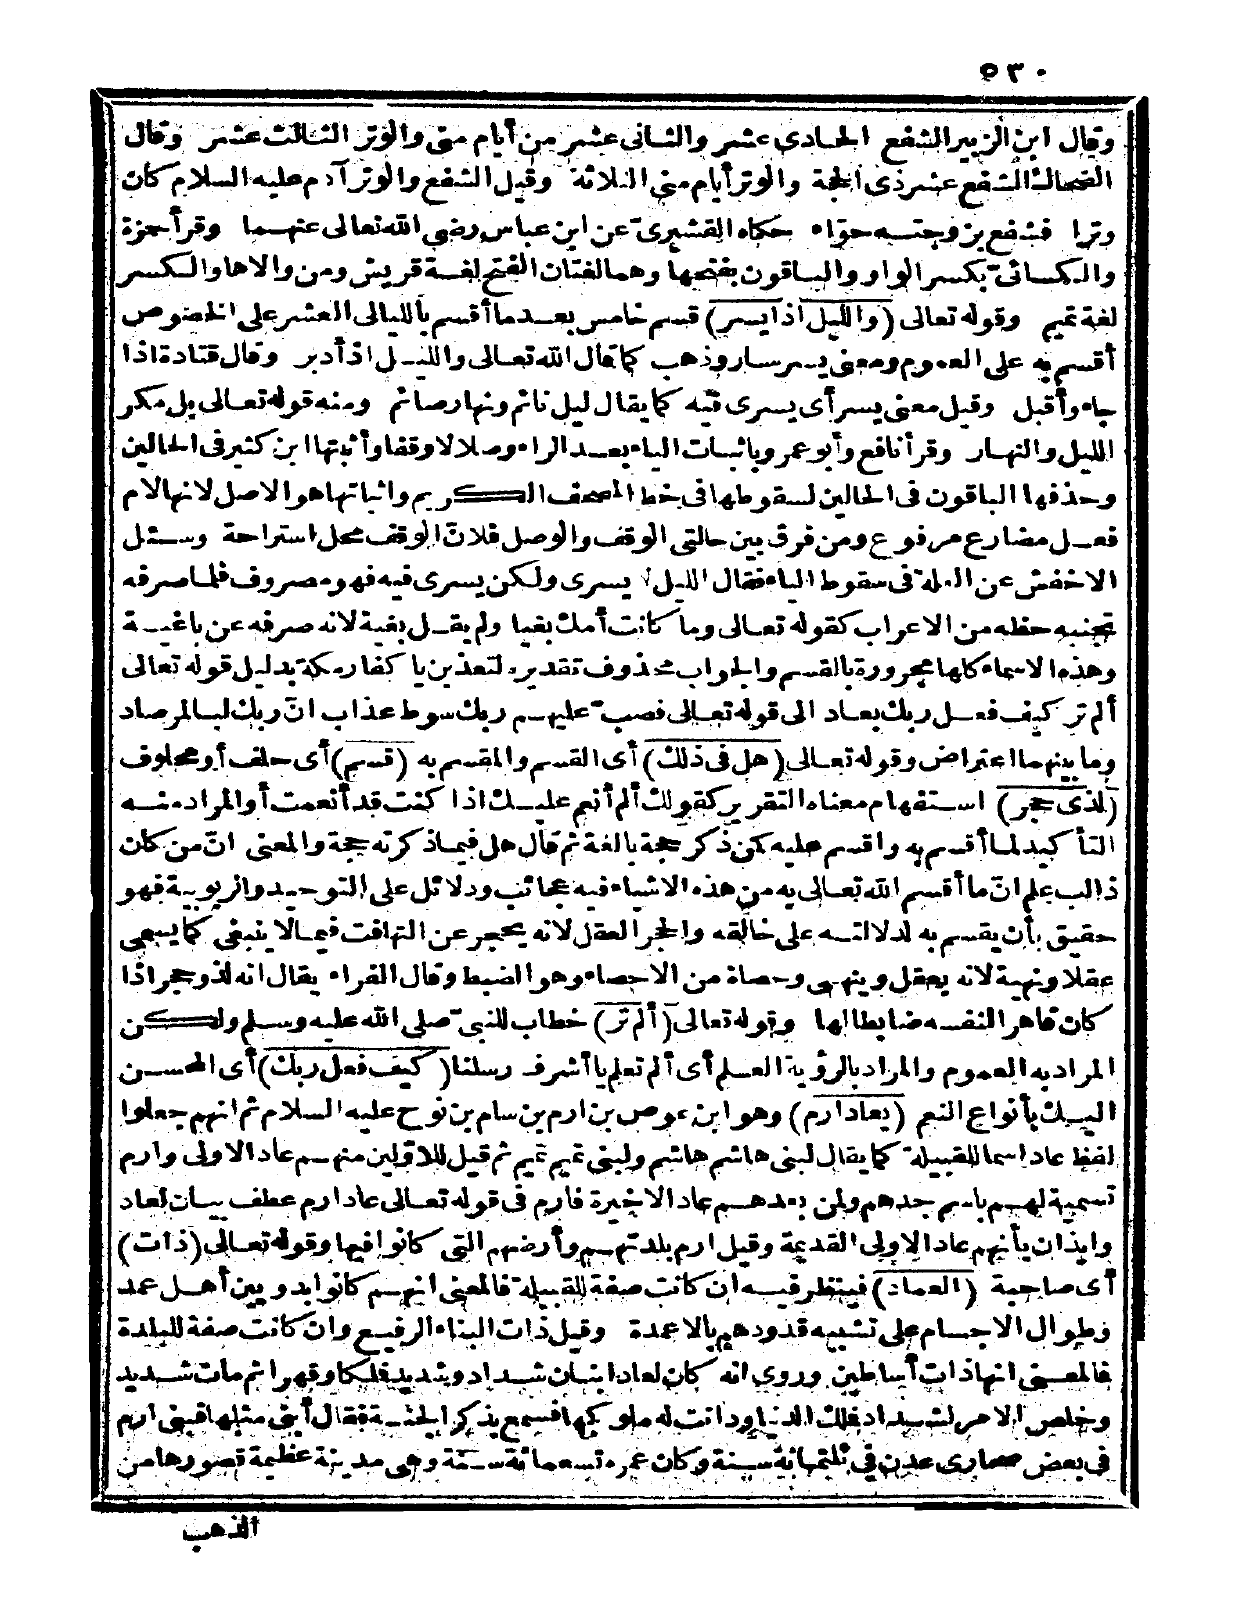 ٥٣٠
وقال ابن الزبير الشفع الحادى عشر والثانى عشر من أيام منى والوتر الثالث عشر وقال
الضحاك الشفع عشر ذى الحجة والوتر أيام منى الثلاثة وقيل الشفع والوتر آدم عليه السلام كان
وترا فشفع بزوجته حوّاء حكاه القشيرىّ عن ابن عباس رضى الله تعالى عنهما وقرأ حمزة
والكسائىّ بكسر الواو والباقون بفتحها وهما لغتان الفتح لغة قريش ومن والاها والكسر
لغة تميم وقوله تعالى (والليل اذا يسر) قسم خامس بعدما أقسم بالليالى العشر على الخصوص
أقسم به على العموم ومعنى يسر سار وذهب كما قال الله تعالى والليل اذ أدبر وقال قتادة اذا
جاء وأقبل وقيل معنى يسر أى يسرى فيه كما يقال ليل نائم ونهار صائم ومنه قوله تعالى بل مكر
الليل والنهار وقرأ نافع وأبو عمرو باثبات الياء بعد الراء وصلا لا وقفا وأثبتها ابن كثير فى الحالين
وحذفها الباقون فى الحالين لسقوطها فى خط المصحف الكريم واثباتها هو الاصل لانها لام
فعل مضارع مرفوع ومن فرق بين حالتى الوقف والوصل فلانّ الوقف محل استراحة وسئل
الاخفش عن العلة فى سقوط الياء فقال الليل لا يسرى ولكن يسرى فيه فهو مصروف فلما صرفه
بخنه حظه من الاعراب كقوله تعالى وما كانت أمك بغيا ولم يقل بغية لانه صرفه عن باغية
وهذه الاسماء كلها مجرورة بالقسم والجواب محذوف تقديره لتعذبن يا كفار مكة بدليل قوله تعالى
ألم تر كيف فعل ربك بعاد الى قوله تعالى فصبّ عليهم ربك سوط عذاب انّ ربك لبالمرصاد
وما بينهما اعتراض وقوله تعالى (هل فى ذلك) أى القسم والمقسم به (قسم) أى حلف أو محلوف
(لذى حجر) استفهام معناه التقرير كقولك ألم أنعم عليك اذا كنت قد أنعمت أو المراد منه
التأكيد لما أقسم به واقسم عليه كمن ذكر حجة بالغة ثم قال هل فيما ذكرته حجة والمعنى انّ من كان
ذا لب علم انّ ما أقسم الله تعالى به من هذه الاشياء فيه عجائب ودلائل على التوحيد والربوبية فهو
حقيق بأن يقسم به لدلالته على خالقه والحجر العقل لانه يحجر عن التهافت فيما لا ينبغى كما يسمى
عقلا ونهية لانه يعقل وينهى وحصاة من الاحصاء وهو الضبط وقال الفراء يقال انه لذو حجر اذا
كان قاهرا لنفسه ضابطا لها وقوله تعالى (ألم تر) خطاب للنبىّ صلى الله عليه وسلم ولكن
المراد به العموم والمراد بالرؤية العلم أى ألم تعلم يا أشرف رسلنا (كيف فعل ربك) أى المحسن
اليك بأنواع النعم (بعاد ارم) وهو ابن عوص بن ارم بن سام بن نوح عليه السلام ثم انهم جعلوا
لفظ عاد اسما للقبيلة كما يقال لبنى هاشم هاشم ولبنى تميم تميم ثم قيل للاوّلين منهم عاد الاولى وارم
تسمية لهم باسم جدهم ولمن بعدهم عاد الاخيرة فارم فى قوله تعالى عاد ارم عطف بيان لعاد
وايذان بأنهم عاد الاولى القديمة وقيل ارم بلدتهم وأرضهم التى كانوا فيها وقوله تعالى (ذات)
أى صاحبة (العماد) فينظر فيه ان كانت صفة للقبيلة فالمعنى انهم كانوا بدويين أهل عمد
وطوال الاجسام على تشبيه قدودهم بالاعمدة وقيل ذات البناء الرفيع وان كانت صفة للبلدة
فالمعنى انها ذات أساطين وروى انه كان لعاد ابنان شداد وشديد فملكا وقهرا ثم مات شديد
وخلص الامر لشداد فملك الدنيا ودانت له ملوكها فسمع بذكر الجنة فقال أبنى مثلها فبنى ارم
فى بعض صحارى عدن فى ثلثمائة سنة وكان عمره تسعمائة سنة وهى مدينة عظيمة قصورها من
الذهب